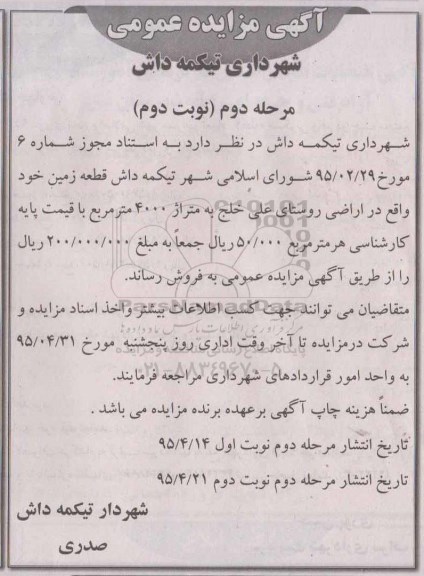 آگهی مزایده عمومی
شهرداری تیکمه داش
مرحله دوم (نوبت دوم)
شهرداری تیکمه داش در نظر دارد به استناد مجوز شماره ۶
مورخ ۹۵/۰۲/۲۹ شورای اسلامی شهر تیکمه داش قطعه زمین خود
واقع در اراضی روستای علی خلج به متراژ ۴۰۰۰ مترمربع با قیمت پایه
کارشناسی هر مترمربع ۵۰/۰۰۰ ریال جمعاً به مبلغ ۲۰۰/۰۰۰/۰۰۰ ریال
را از طریق آگهی مزایده عمومی به فروش رساند.
متقاضیان می توانند جهت کسب اطلاعات بیشتر واخذ اسناد مزایده و
شرکت درمزایده تا آخر وقت اداری روز پنجشنبه مورخ ۹۵/۰۴/۳۱
به واحد امور قراردادهای شهرداری مراجعه فرمایند.
ضمناً هزینه چاپ آگهی برعهده برنده مزایده می باشد .
تاریخ انتشار مرحله دوم نوبت اول ۹۵/۴/۱۴
تاریخ انتشار مرحله دوم نوبت دوم ۹۵/۴/۲۱
شهردار تیکمه داش
صدری
ParsNamadData